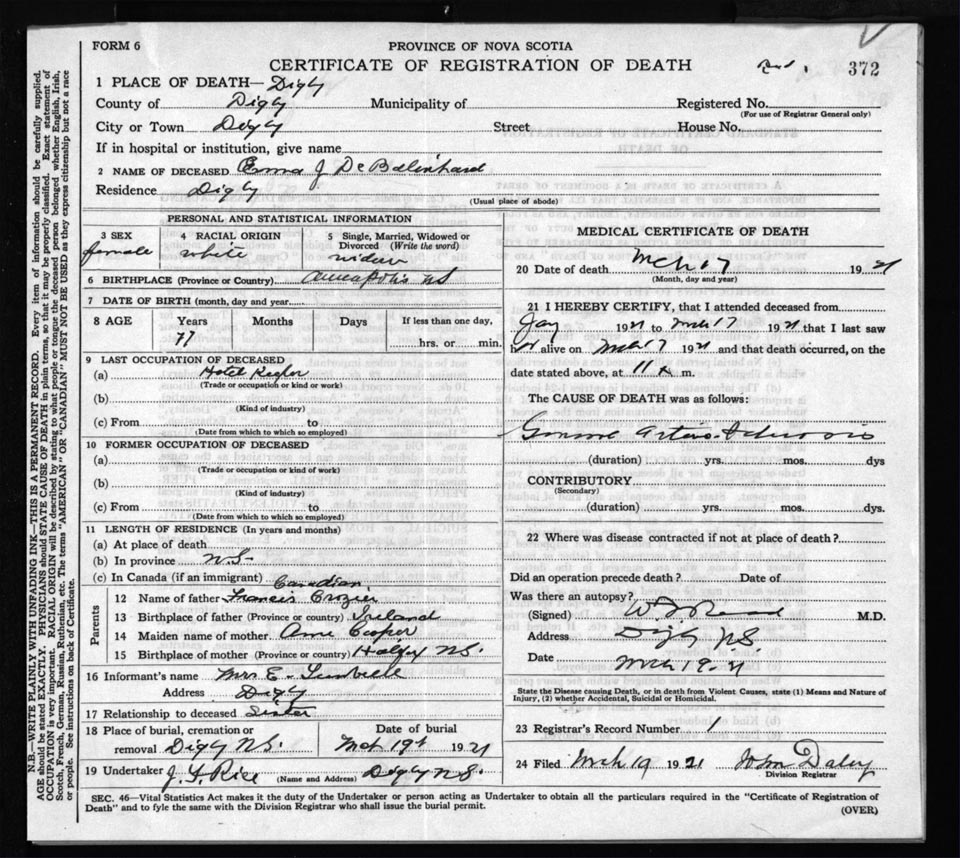 FORM 6
PROVINCE OF NOVA SCOTIA
CERTIFICATE OF REGISTRATION OF DEATH
372
1 PLACE OF DEATH—Digby
County of Digby Municipality of Registered No.
(For use of Registrar General only)
City or Town Digby Street House No.
If in hospital or institution, give name
2 NAME OF DECEASED Emma J De Balinhard
Residence Digby
(Usual place of abode)
PERSONAL AND STATISTICAL INFORMATION
3 SEX 4 RACIAL ORIGIN 5 Single, Married, Widowed or Divorced (Write the word)
female white widow
6 BIRTHPLACE (Province or Country) Annapolis NS
7 DATE OF BIRTH (month, day and year)
8 AGE Years Months Days If less than one day,
77 hrs. or min.
9 LAST OCCUPATION OF DECEASED
(a) Hotel Keeper
(Trade or occupation or kind or work)
(b)
(Kind of industry)
(c) From to
(Date from which to which so employed)
10 FORMER OCCUPATION OF DECEASED
(a)
(Trade or occupation or kind of work)
(b)
(Kind of industry)
(c) From to
(Date from which to which so employed)
11 LENGTH OF RESIDENCE (In years and months)
(a) At place of death
(b) In province N.S.
(c) In Canada (if an immigrant) Canadian
Parents
12 Name of father Francis Crozier
13 Birthplace of father (Province or country) Ireland
14 Maiden name of mother Ann Cooper
15 Birthplace of mother (Province or country) Halifax N.S.
16 Informant's name Mrs E.
Address Digby
17 Relationship to deceased Sister
18 Place of burial, cremation or removal Digby N.S. Date of burial Mch 19th 1921
19 Undertaker J. L. Rice (Name and Address) Digby N.S.
MEDICAL CERTIFICATE OF DEATH
20 Date of death Mch 17 1921
(Month, day and year)
21 I HEREBY CERTIFY, that I attended deceased from
Jay 1921 to Mch 17 1921 that I last saw
her alive on Mch 17 1921 and that death occurred, on the
date stated above, at 11 m.
The CAUSE OF DEATH was as follows:
(duration) yrs. mos. dys
CONTRIBUTORY
(Secondary)
(duration) yrs. mos. dys.
22 Where was disease contracted if not at place of death?
Did an operation precede death? Date of
Was there an autopsy?
(Signed) M.D.
Address Digby N.S.
Date Mch 19 - 21
State the Disease causing Death, or in death from Violent Causes, state (1) Means and Nature of
Injury, (2) whether Accidental, Suicidal or Homicidal.
23 Registrar's Record Number 1
24 Filed Mch 19 1921 John Daley
Division Registrar
SEC. 46—Vital Statistics Act makes it the duty of the Undertaker or person acting as Undertaker to obtain all the particulars required in the "Certificate of Registration of
Death" and to fyle the same with the Division Registrar who shall issue the burial permit.
(OVER)
N.B.—WRITE PLAINLY WITH UNFADING INK—THIS IS A PERMANENT RECORD. Every item of information should be carefully supplied.
AGE should be stated EXACTLY. PHYSICIANS should STATE CAUSE OF DEATH in plain terms, so that it may be properly classified. Exact statement of
OCCUPATION is very important. RACIAL ORIGIN will be described by stating to what people or tongue the deceased person belonged whether English, Irish,
Scotch, French, German, Russian, Ruthenian, etc. The terms "AMERICAN" OR "CANADIAN" MUST NOT BE USED as they express citizenship but not a race
or people. See instructions on back of Certificate.